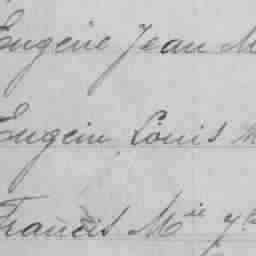 Eugène Jean M
Eugène Louis M
Francis Mie